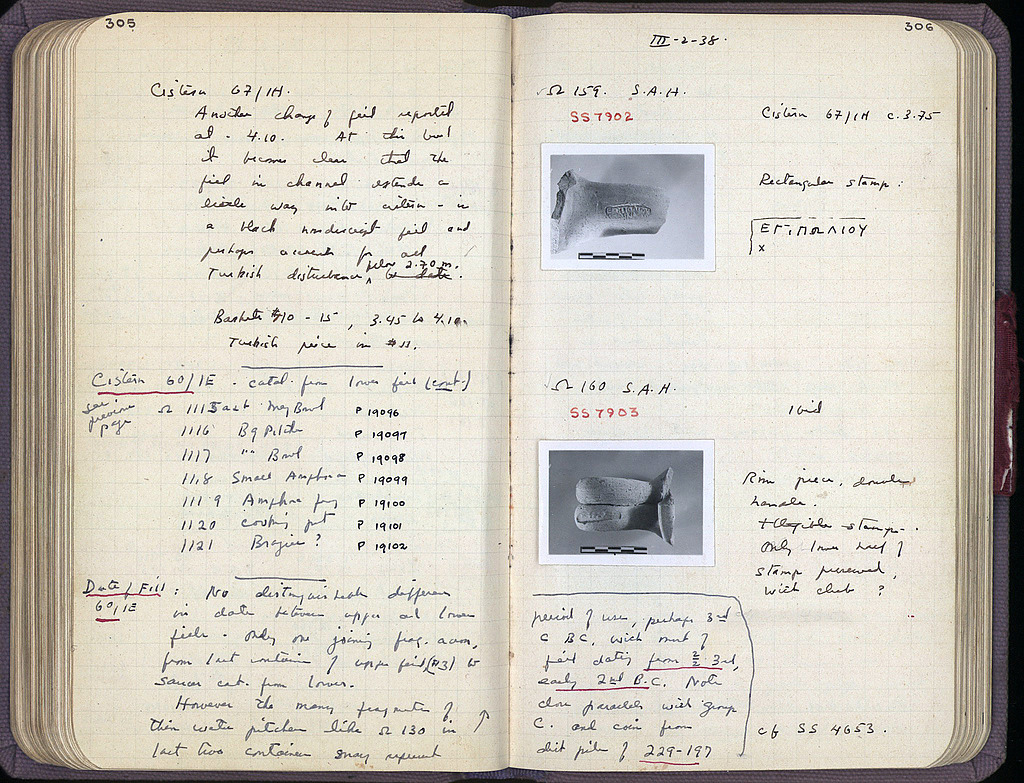 305
Cistern 67/1H.
Another change of fill reported
at - 4.10. At this level
it becomes clear that the
fill in channel extends a
little way into cistern - is
a black nondescript fill and
perhaps accounts for all
Turkish disturbance below 2.70 m.
Baskets #10 - 15, 3.45 to 4.10.
Turkish piece in #11.
Cistern 60/1E - catal. from lower fill (cont.)
see
previous
page
Ω 1115 Bowl P 19096
1116 Bg Pitcher P 19097
1117 "" Bowl P 19098
1118 Small Amphora P 19099
1119 Amphora jug P 19100
1120 cooking pot P 19101
1121 Brazier? P 19102
Date/Fill: No distinguishable difference
60/1E
in date between upper and lower
fills - only one joining frag. across,
from last container of upper fill (#3) to
saucer cat. from lower.
However the many fragments of
thin water pitchers like Ω 130 in
last two containers may represent
306
III-2-38.
Ω 159. S.A.H.
SS 7902
Cistern 67/1H c. 3.75
Rectangular stamp:
x
Ω 160 S.A.H.
SS 7903
Ibid
Rim piece, double
handle.
Illegible stamp.
Only lower half of
stamp preserved,
with club ?
period of use, perhaps 3rd
C BC, with most of
fill dating from 2/2 3rd,
early 2nd B.C. Note
close parallels with group
C. and coin from
dist pile of 229-197
cf SS 4653.